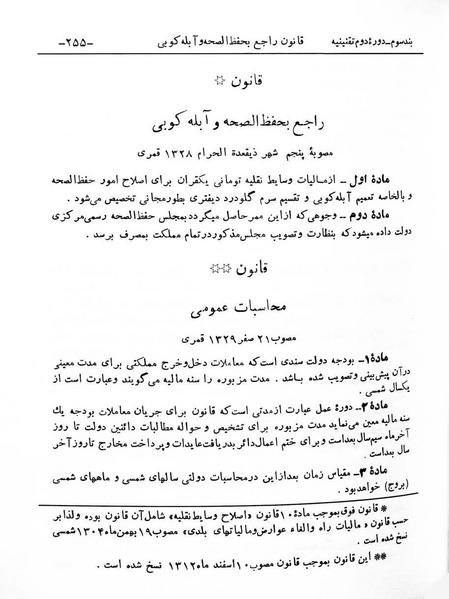 بند سوم ــ دورهٔ دوم تقنینیه قانون راجع بحفظ الصحه و آبله کوبی -۲۵۵-
قانون *
راجع بحفظ الصحه و آبله کوبی
مصوبهٔ پنجم شهر ذیقعدة الحرام ۱۳۲۸ قمری
مادهٔ اول ــ از مالیات وسایط نقلیه تومانی یکقران برای اصلاح امور حفظ الصحه
و بالخاصه تعمیم آبله کوبی و تقسیم سرم گلودرد دیفتری بطور مجانی تخصیص می‌شود.
مادهٔ دوم ــ وجوهی که از این ممر حاصل میگردد بمجلس حفظ الصحه رسمی مرکزی
دولت داده میشود که بنظارت و تصویب مجلس مذکور در تمام مملکت بمصرف برسد.
قانون **
محاسبات عمومی
مصوب ۲۱ صفر ۱۳۲۹ قمری
مادهٔ ۱ــ بودجه دولت سندی است که معاملات دخل و خرج مملکتی برای مدت معینی
در آن پیش بینی و تصویب شده باشد. مدت مزبوره را سنه مالیه می گویند و عبارت است از
یکسال شمسی.
مادهٔ ۲ــ دورهٔ عمل عبارت از مدتی است که قانون برای جریان معاملات بودجه یك
سنه مالیه معین می نماید مدت مزبوره برای تشخیص و حواله مطالبات دائنین دولت تا روز
آخر ماه سیم سال بعد است و برای ختم اعمال دائر بدریافت عایدات و پرداخت مخارج تا روز آخر
سال بعد است.
مادهٔ ۳ــ مقیاس زمان بعد از این در محاسبات دولتی سالهای شمسی و ماههای شمسی
(بروج) خواهد بود.
* قانون فوق بموجب مادهٔ ۱۰ قانون «اصلاح وسایط نقلیه» شامل آن قانون بوده و لذا بر
حسب قانون «مالیات راه و الغاء عوارض و مالیاتهای بلدی» مصوب ۱۹ بهمن ماه ۱۳۰۴ شمسی
نسخ شده است.
** این قانون بموجب قانون مصوب ۱۰ اسفند ماه ۱۳۱۲ نسخ شده است.